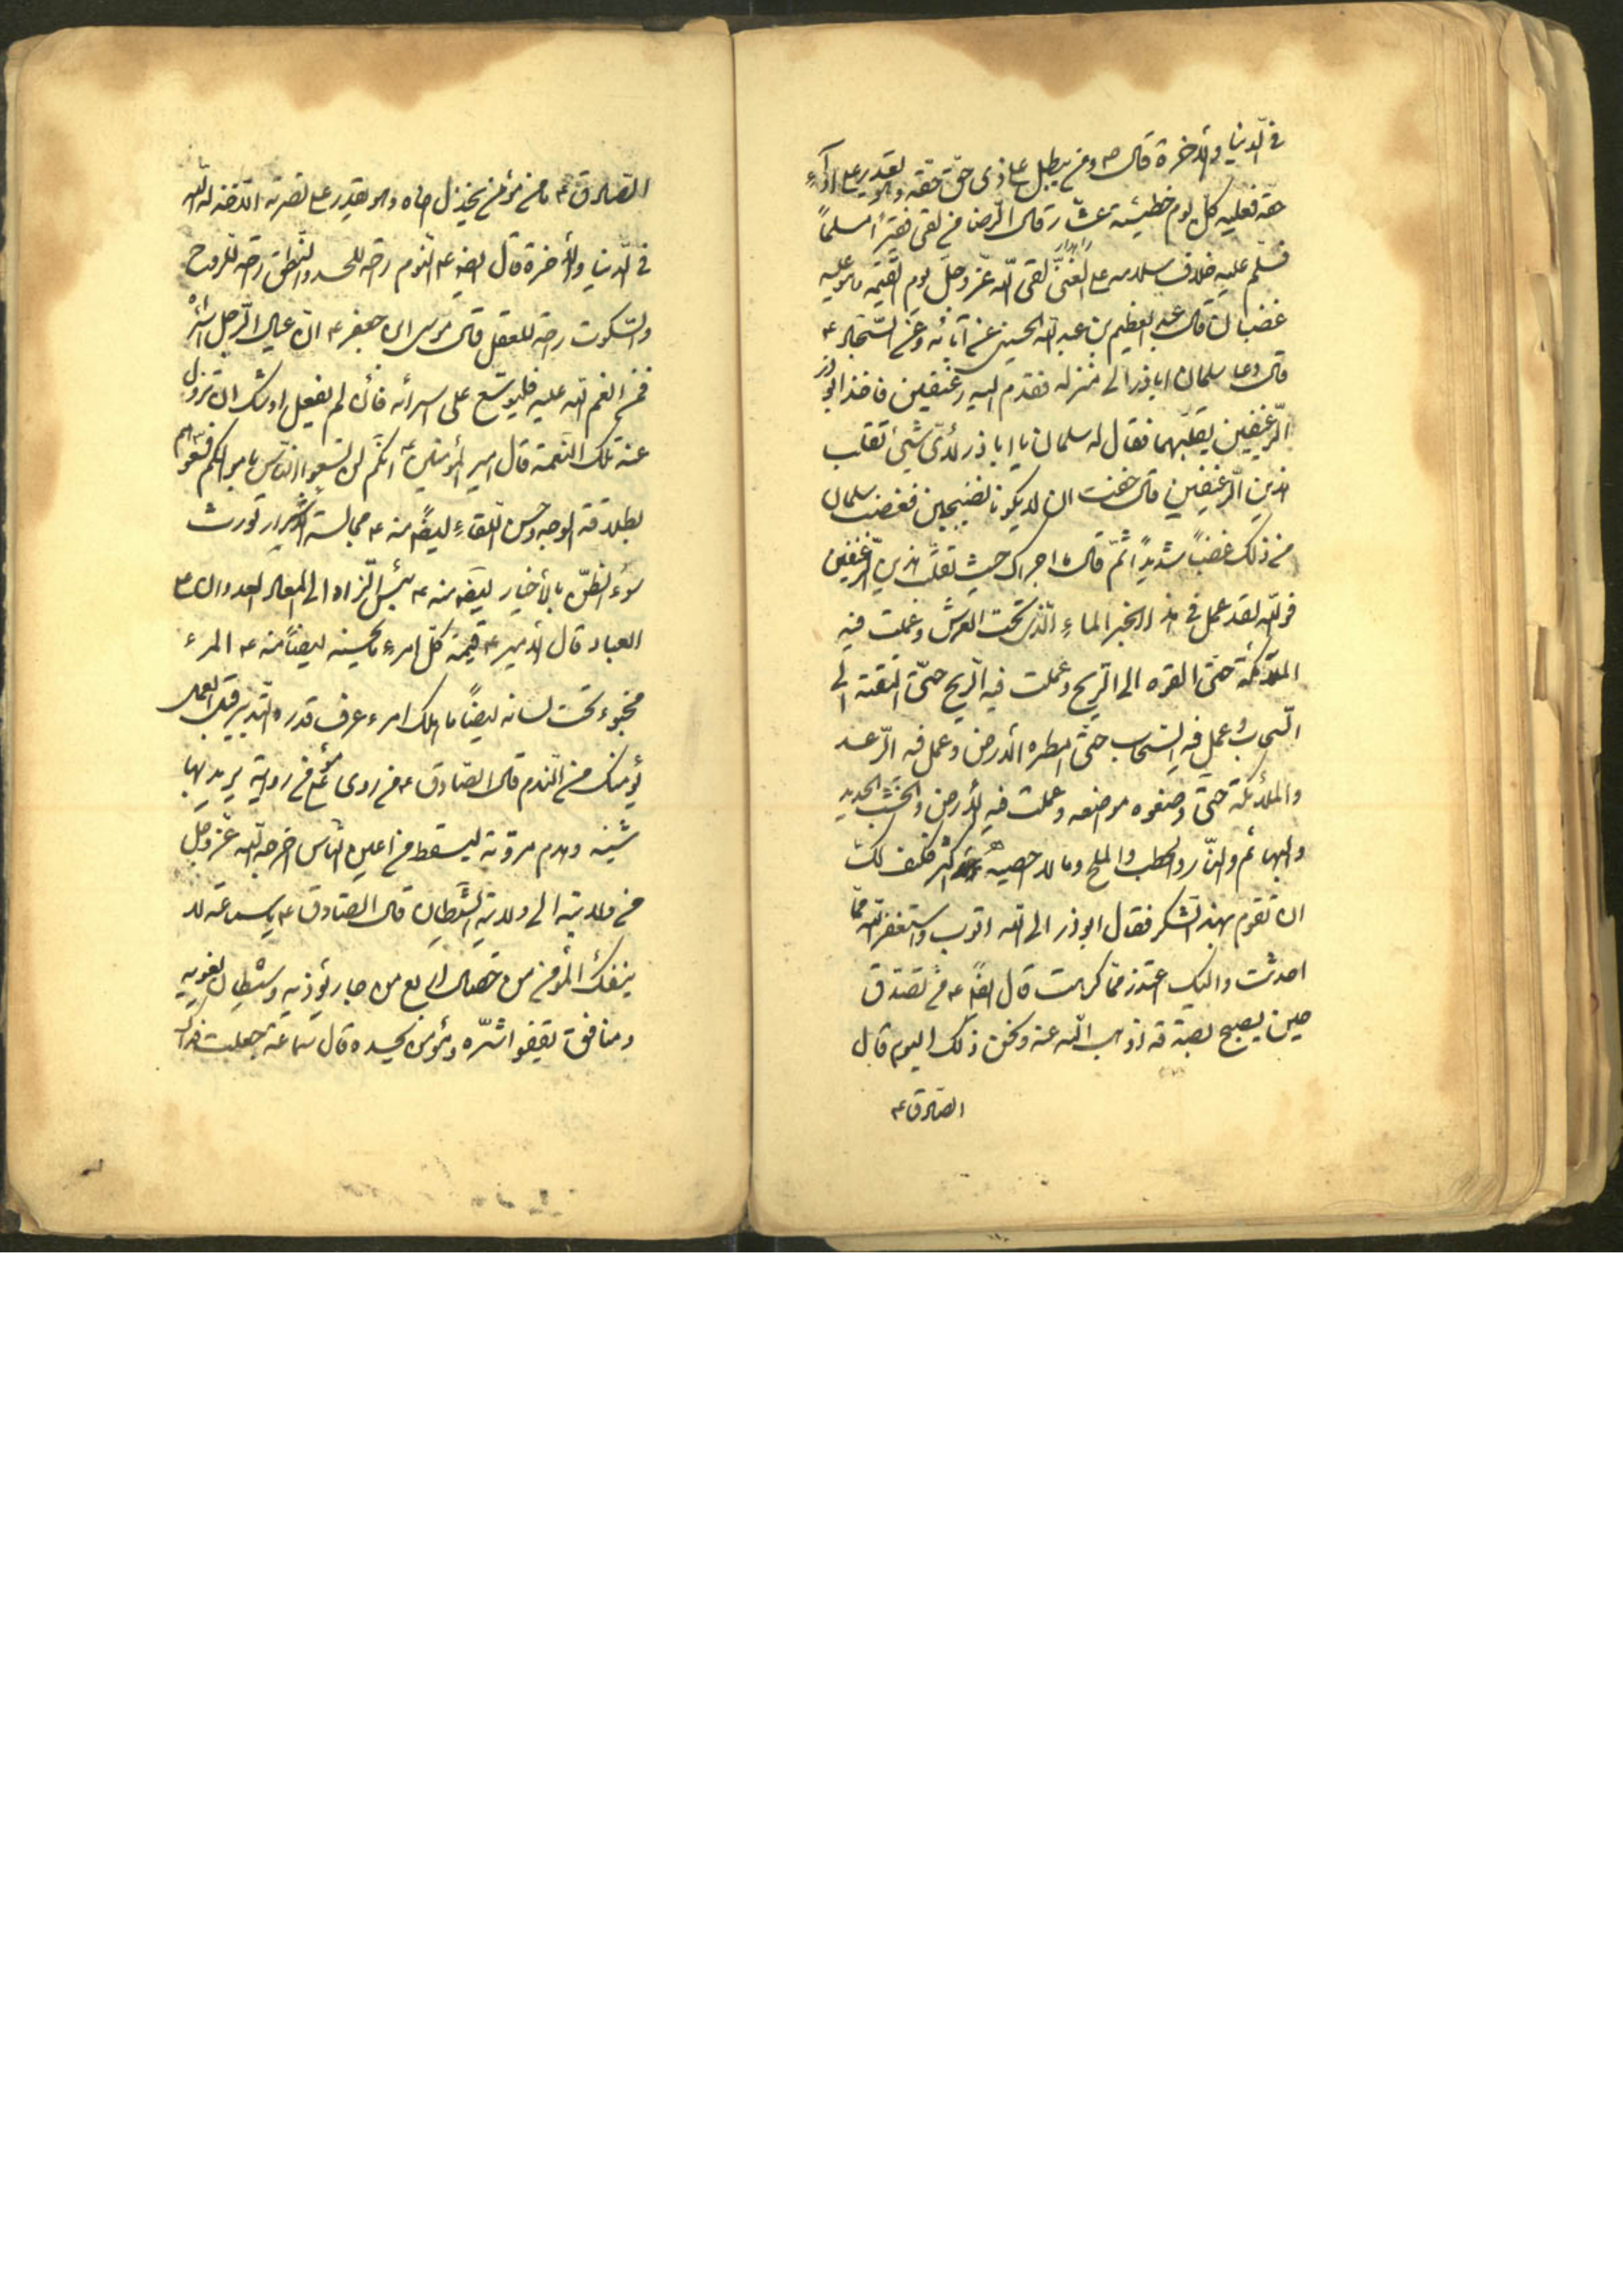 في الدنيا والاخرة قال ص ومن يبطل على ذى حق حقه وهو يقدر على اداء
حقه فعليه كل يوم خطيئة عشار قال الرضا من لقى فقيرا مسلما
فسلم عليه خلاف سلامه على الغنى لقى الله عز وجل يوم القيمة وهو عليه
غضبان قال عبد العظيم بن عبد الله الحسنى عن آبائه وعن السجاد ع
قال دعا سلمان اباذر الى منزله فقدم اليه رغيفين فاخذ ابوذر
الرغيفين يقلبهما فقال له سلمان يا اباذر لاى شيئ تقلب
هذين الرغيفين قال خفت ان لا يكونا نضيجين فغضب سلمان
من ذلك غضبا شديدا ثم قال ما اجراك حيث تقلب هذين الرغيفين
فوالله لقد عمل في هذا الخبز الماء الذى تحت العرش وعملت فيه
الملائكة حتى القوه الى الريح وعملت فيه الريح حتى القته الى
السحاب وعمل فيه السحاب حتى امطره الى الارض وعمل فيه الرعد
والملائكة حتى وضعوه مواضعه وعملت فيه الارض والخشب والحديد
والبهائم والنار والحطب والملح وما لا احصيه اكثر فكيف لك
ان تقوم بهذا الشكر فقال ابوذر الى الله اتوب واستغفر الله مما
احدثت واليك اعتذر مما كرهت قال ايضا ع من تصدق
حين يصبح بصدقة اذهب الله عنه نحس ذلك اليوم قال
الصادق ع
الصادق ع ما من مؤمن يخذل اخاه وهو يقدر على نصرته الا خذله الله
في الدنيا والاخرة قال ايضا ع النوم راحة للجسد والنطق راحة للروح
والسكوت راحة للعقل قال موسى ابن جعفر ع ان عيال الرجل اسرائه
فمن انعم الله عليه فليوسع على اسرائه فان لم يفعل اوشك ان تزول
عنه تلك النعمة قال امير المؤمنين ع انكم لن تسعوا الناس باموالكم فسعوهم
بطلاقة الوجه وحسن اللقاء ايضا منه ع مجالسة الاشرار تورث
سوء الظن بالاخيار ايضا منه ع بئس الزاد الى المعاد العدوان على
العباد قال الامير ع قيمة كل امرء ما يحسنه ايضا منه ع المرء
مخبوء تحت لسانه ايضا ما هلك امرء عرف قدره والتدبير قبل العمل
يؤمنك من الندم قال الصادق ع من روى على مؤمن رواية يريد بها
شينه وهدم مروته ليسقط من اعين الناس اخرجه الله عز وجل
من ولايته الى ولاية الشيطان قال الصادق ع يا سماعة لا
ينفك المؤمن من خصال اربع من جار يؤذيه وشيطان يغويه
ومنافق يقفو اثره ومؤمن يحسده قال سماعة جعلت فداك